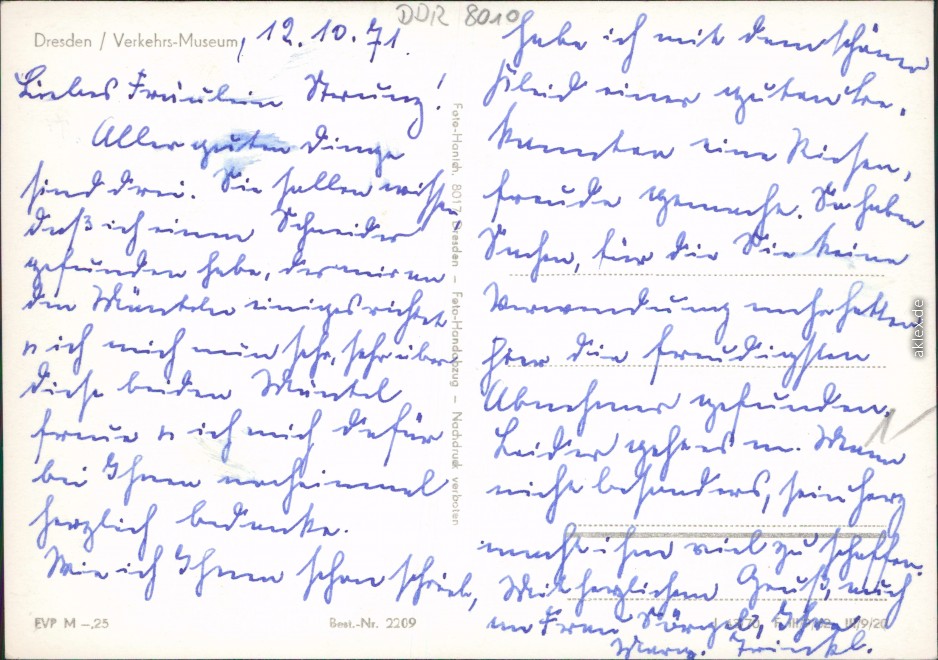 DDR 8010
Dresden / Verkehrs-Museum, 12.10.71.
Liebes Fräulein Strunz!
Aller guten Dinge
sind drei. Sie sollen wissen
daß ich einen Schneider
gefunden habe, der mir an
den Mänteln einiges richtet
u ich mich nun sehr, sehr über
diese beiden Mäntel
freue u ich mich dafür
bei Ihnen nocheinmal
herzlich bedanke.
Wie ich Ihnen schon schrieb,
habe ich mit dem schönen
Kleid einer guten Be-
kannten eine Riesen-
freude gemacht. So haben
Sachen, für die Sie keine
Verwendung mehr hatten
hier die freudigsten
Abnehmer gefunden.
Leider geht es m. Mann
nicht besonders, sein Herz
macht ihm viel zu schaffen.
Mit herzlichem Gruß, auch
an Frau Ihre
Foto-Hanich, 8017 Dresden – Foto-Handabzug – Nachdruck verboten
EVP M –,25
Best.-Nr. 2209
III/9/20
akpool.de